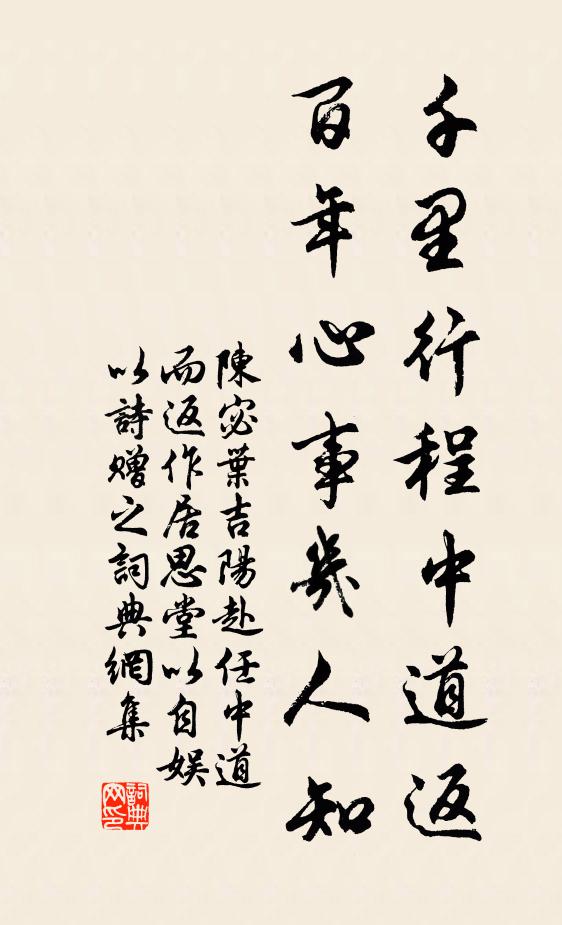 千里行程中道返
百年心事幾人知
陳宓葉吉陽赴任中道
而返作居思堂以自娱
以詩贈之詞典網集
詞典
网印